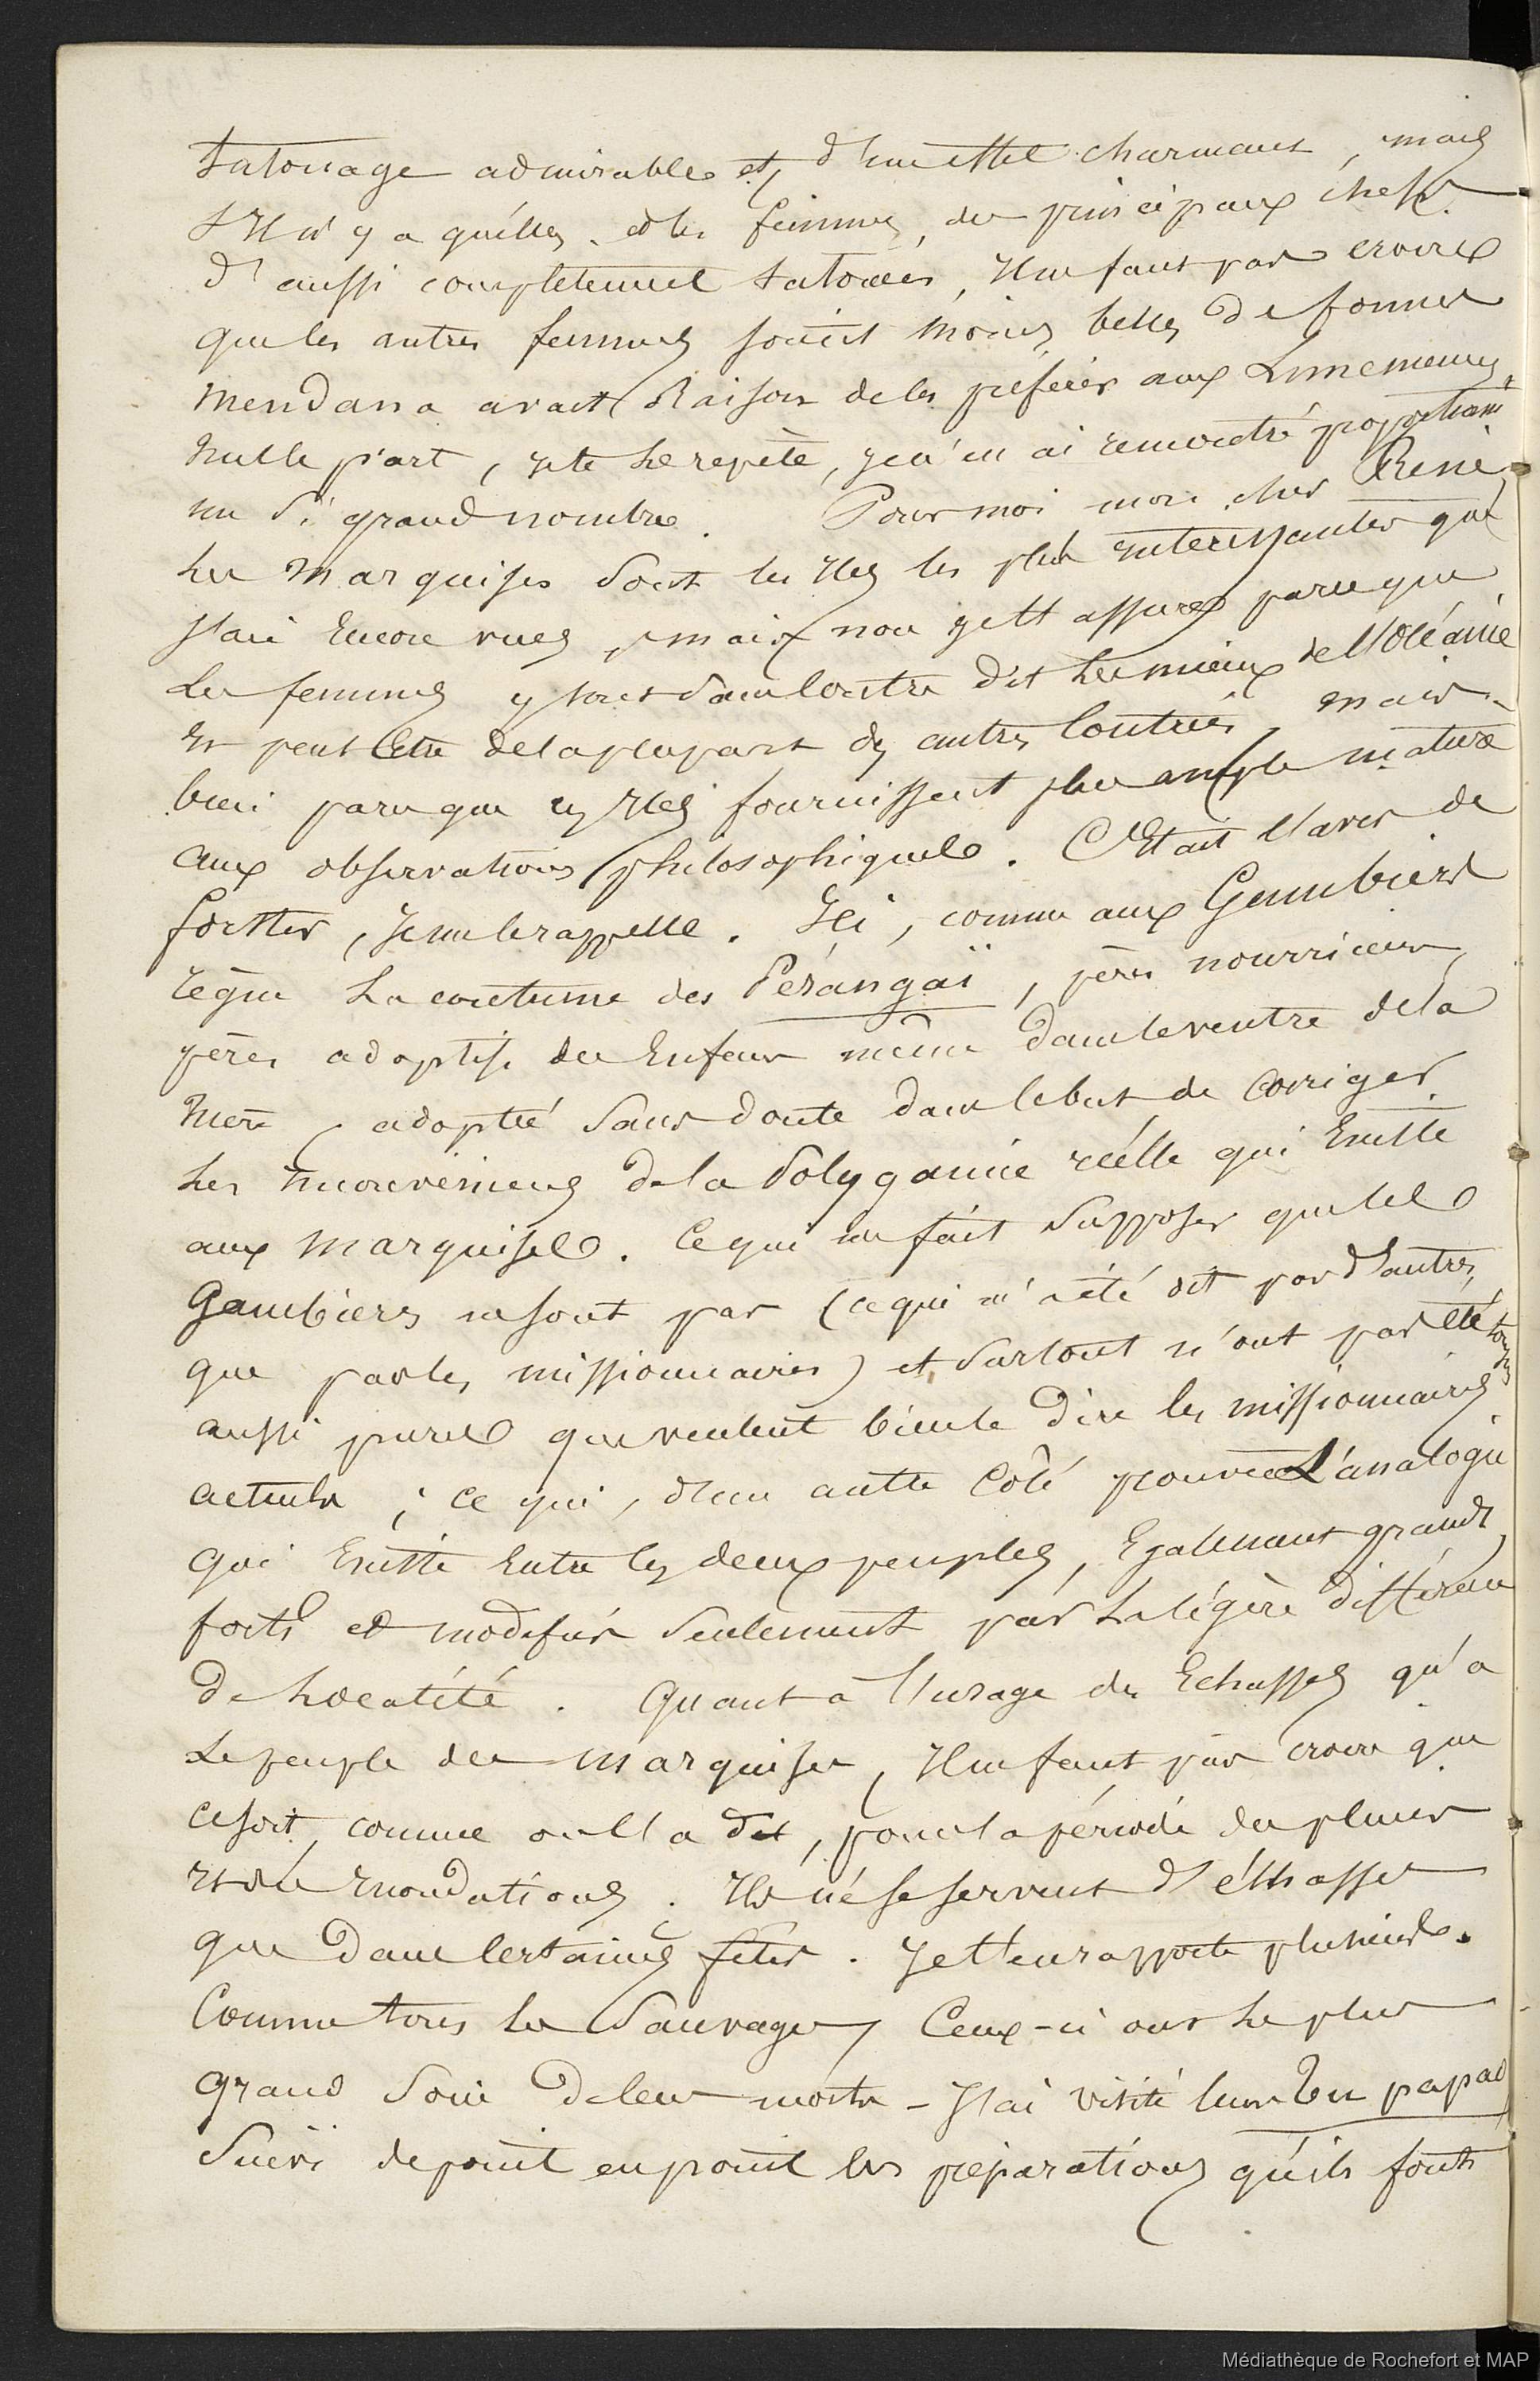 tatouage admirable et, d'un effet charmant, mais
s'Il n'y a qu'elles et les femmes, des principaux chefs
d'aussi completement tatouées, Il ne faut pas croire
que les autres femmes soient moins belles de formes
Mendana avait Raison de les préférer aux Limeniennes,
Nulle part, je te le repète, je n'en ai rencontré proportiont
un si grand nombre. Pour moi mon cher René,
Les Marquises sont les Iles les plus interessantes que
J'ai Encore vues, mais non je t'assure parceque
Les femmes y sont d'un Contre dit Les mieux de l'Océanie
Et peut Etre de la plupart des autres Contrées, mais
bien parceque ces Iles fournissent plus ample matière
aux observations philosophiques. C'Etait l'avis de
forster, Je me le rappelle. Ici, comme aux Gambiers
règne La coutume des Pérangaï, pères nourriciers,
pères adoptifs des Enfans même dans le ventre de la
Mère, adopté sans doute dans le but de Corriger
Les de la Polygamie réelle qui Existe
aux Marquises. Ce qui me fait Supposer que les
Gambiers ne sont pas (ce qui m'a été dit par d'autres
que par les missionnaires) et, Surtout n'ont pas été toujours
aussi pures que veulent bien le dire les missionnaires
actuels; ce qui, d'un autre Côté prouve L'analogie
qui Existe Entre les deux peuples, Egalement grands,
forts et modifiés Seulement par La légère différence
de Localité. Quant à l'usage des Echasses qu'a
Le peuple des Marquises, Il ne faut pas croire que
ce soit, comme on l'a dit, pour la période des pluies
et des Inondations. Ils ne se servent d'échasses
que dans Certaines fêtes. Je t'en rapporte plusieurs.
Comme tous les Sauvages, Ceux-ci ont Le plus
grand Soin de leurs morts - J'ai visité leurs Tu papao
Suivi de point en point les préparations qu'ils font
Médiathèque de Rochefort et MAP